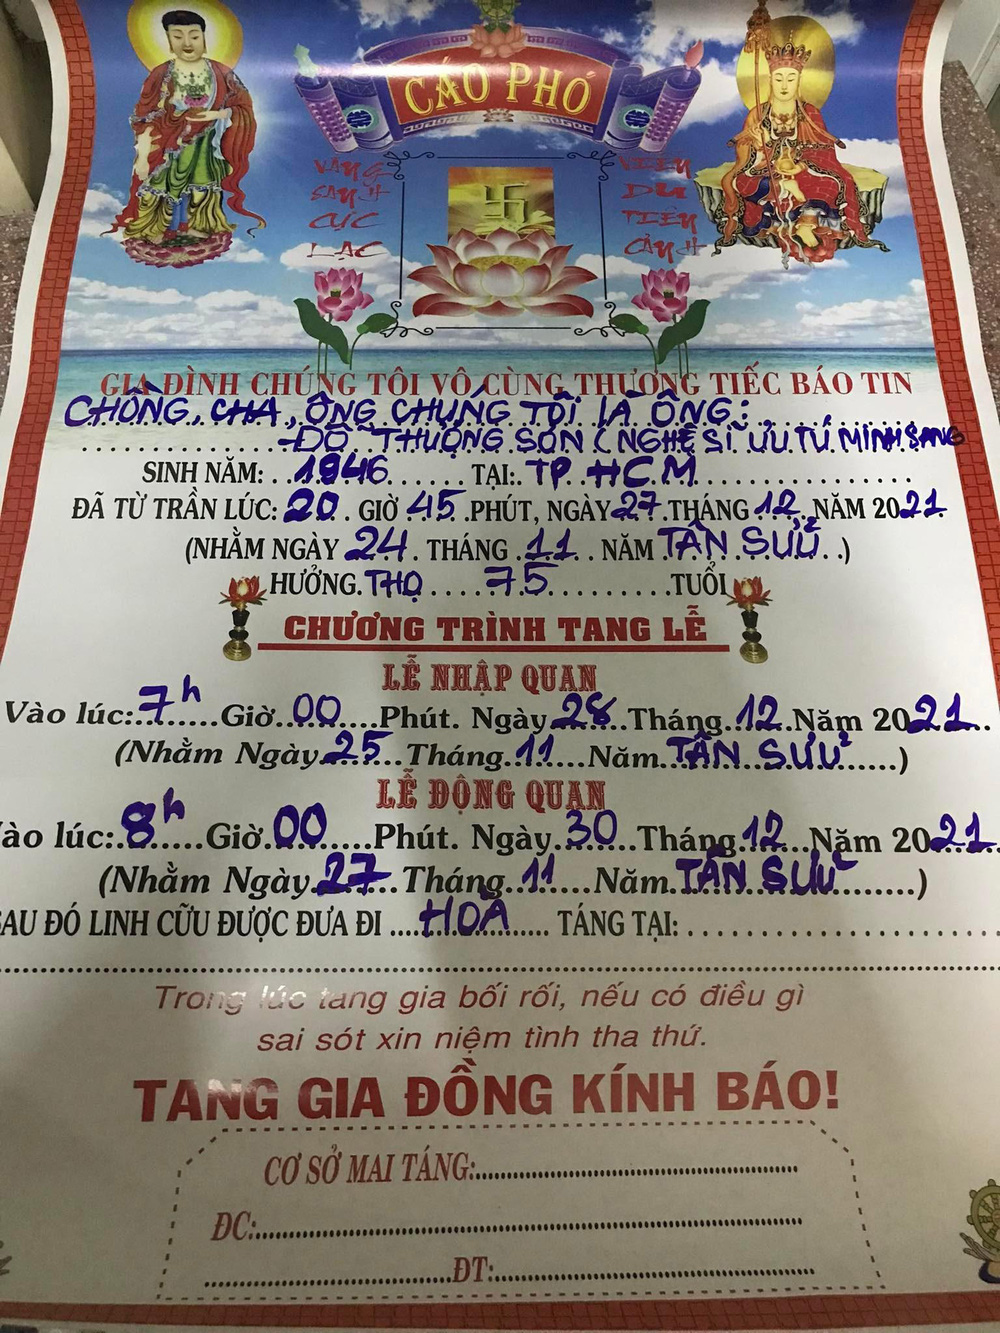 CÁO PHÓ
VÃNG
SANH
CỰC
LẠC
VIÊN
DU
TIÊN
CẢNH
GIA ĐÌNH CHÚNG TÔI VÔ CÙNG THƯƠNG TIẾC BÁO TIN
CHỒNG, CHA, ÔNG CHÚNG TÔI LÀ ÔNG:
- ĐỖ THUỘNG SƠN (NGHỆ SĨ ƯU TÚ MINH SANG
SINH NĂM: 1946 TẠI: TP HCM
ĐÃ TỪ TRẦN LÚC: 20 GIỜ 45 PHÚT, NGÀY 27 THÁNG 12 NĂM 2021
(NHẰM NGÀY 24 THÁNG 11 NĂM TÂN SỬU)
HƯỞNG THỌ 75 TUỔI
CHƯƠNG TRÌNH TANG LỄ
LỄ NHẬP QUAN
Vào lúc: 7h Giờ 00 Phút. Ngày 28 Tháng 12 Năm 2021
(Nhằm Ngày 25 Tháng 11 Năm TÂN SỬU)
LỄ ĐỘNG QUAN
Vào lúc: 8h Giờ 00 Phút. Ngày 30 Tháng 12 Năm 2021
(Nhằm Ngày 27 Tháng 11 Năm TÂN SỬU)
SAU ĐÓ LINH CỮU ĐƯỢC ĐƯA ĐI HOẢ TÁNG TẠI:
Trong lúc tang gia bối rối, nếu có điều gì
sai sót xin niệm tình tha thứ.
TANG GIA ĐỒNG KÍNH BÁO!
CƠ SỞ MAI TÁNG:
ĐC:
ĐT: